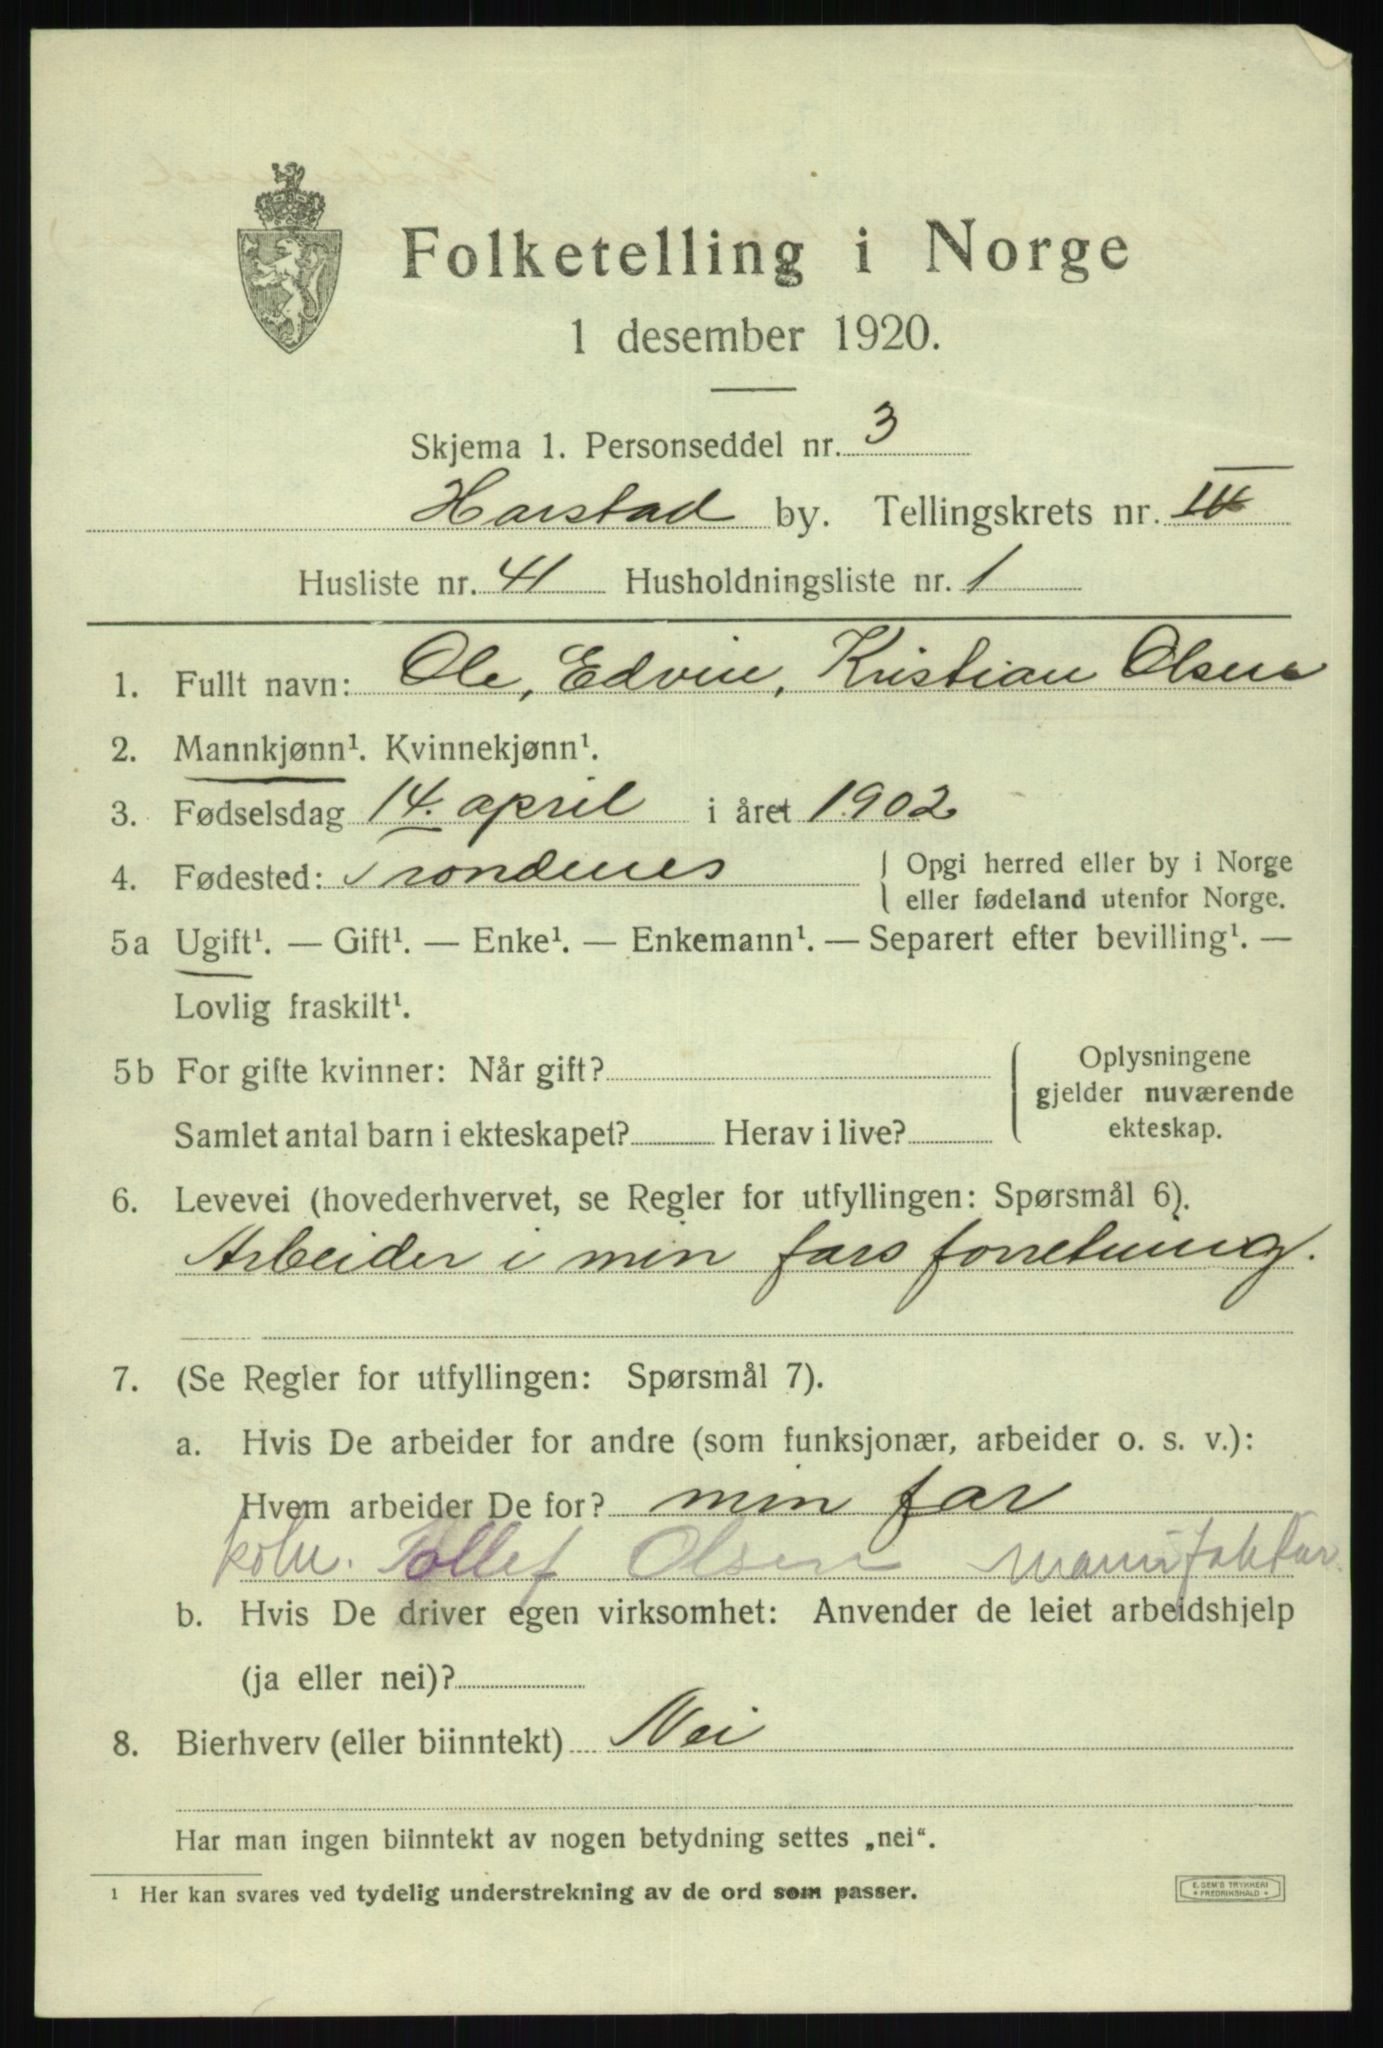 Folketelling i Norge
1 desember 1920.
Skjema 1. Personseddel nr. 3
Harstad by. Tellingskrets nr.
Husliste nr. 41 Husholdningsliste nr. 1
1. Fullt navn: Ole, Edvin, Kristian Olsen
2. Mannkjønn¹. Kvinnekjønn¹.
3. Fødselsdag 14. april i året 1902
4. Fødested: Trondenes { Opgi herred eller by i Norge
eller fødeland utenfor Norge.
5a Ugift¹. — Gift¹. — Enke¹. — Enkemann¹. — Separert efter bevilling¹. —
Lovlig fraskilt¹.
5b For gifte kvinner: Når gift? { Oplysningene
gjelder nuværende
Samlet antal barn i ekteskapet? Herav i live? ekteskap.
6. Levevei (hovederhvervet, se Regler for utfyllingen: Spørsmål 6).
Arbeider i min fars forretning.
7. (Se Regler for utfyllingen: Spørsmål 7).
a. Hvis De arbeider for andre (som funksjonær, arbeider o. s. v.):
Hvem arbeider De for? min far
Tollef Olsen Manufaktur
b. Hvis De driver egen virksomhet: Anvender de leiet arbeidshjelp
(ja eller nei)?
8. Bierhverv (eller biinntekt) Nei
Har man ingen biinntekt av nogen betydning settes „nei“.
¹ Her kan svares ved tydelig understrekning av de ord som passer.
E. SEM'S TRYKKERI
* FREDRIKSHALD *